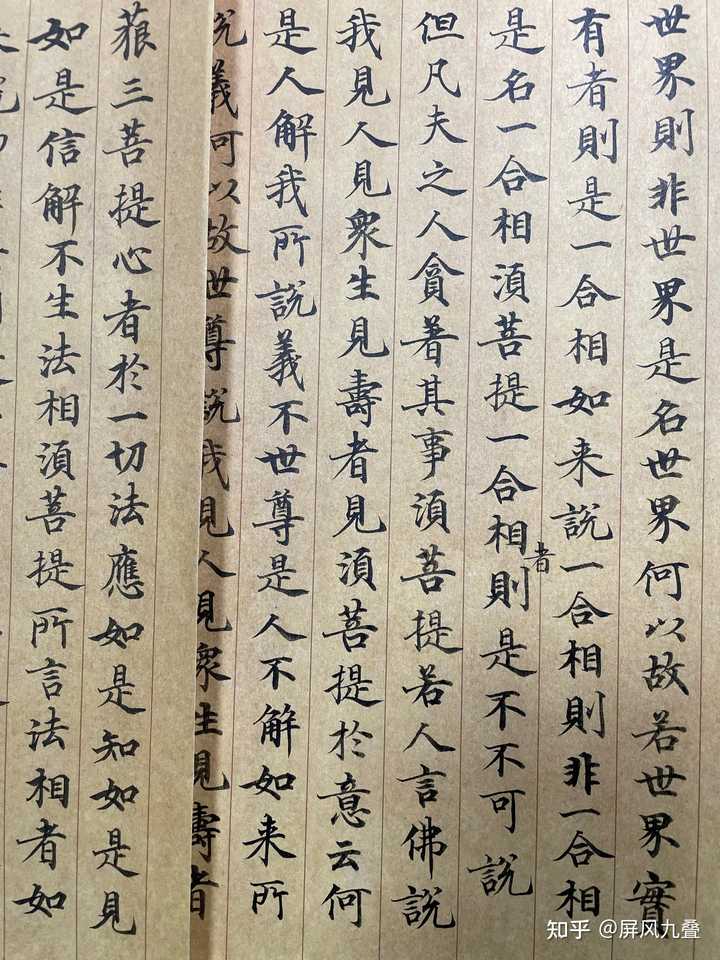 世界則非世界是名世界何以故若世界實
有者則是一合相如来說一合相則非一合相
是名一合相湏菩提一合相者則是不不可說
但凡夫之人貪著其事湏菩提若人言佛說
我見人見衆生見壽者見湏菩提於意云何
是人解我所說義不世尊是人不解如来所
說義何以故世尊說我見人見衆生見壽者
三菩提心者於一切法應如是知如是見
如是信解不生法相湏菩提所言法相者如
知乎 @屏风九叠